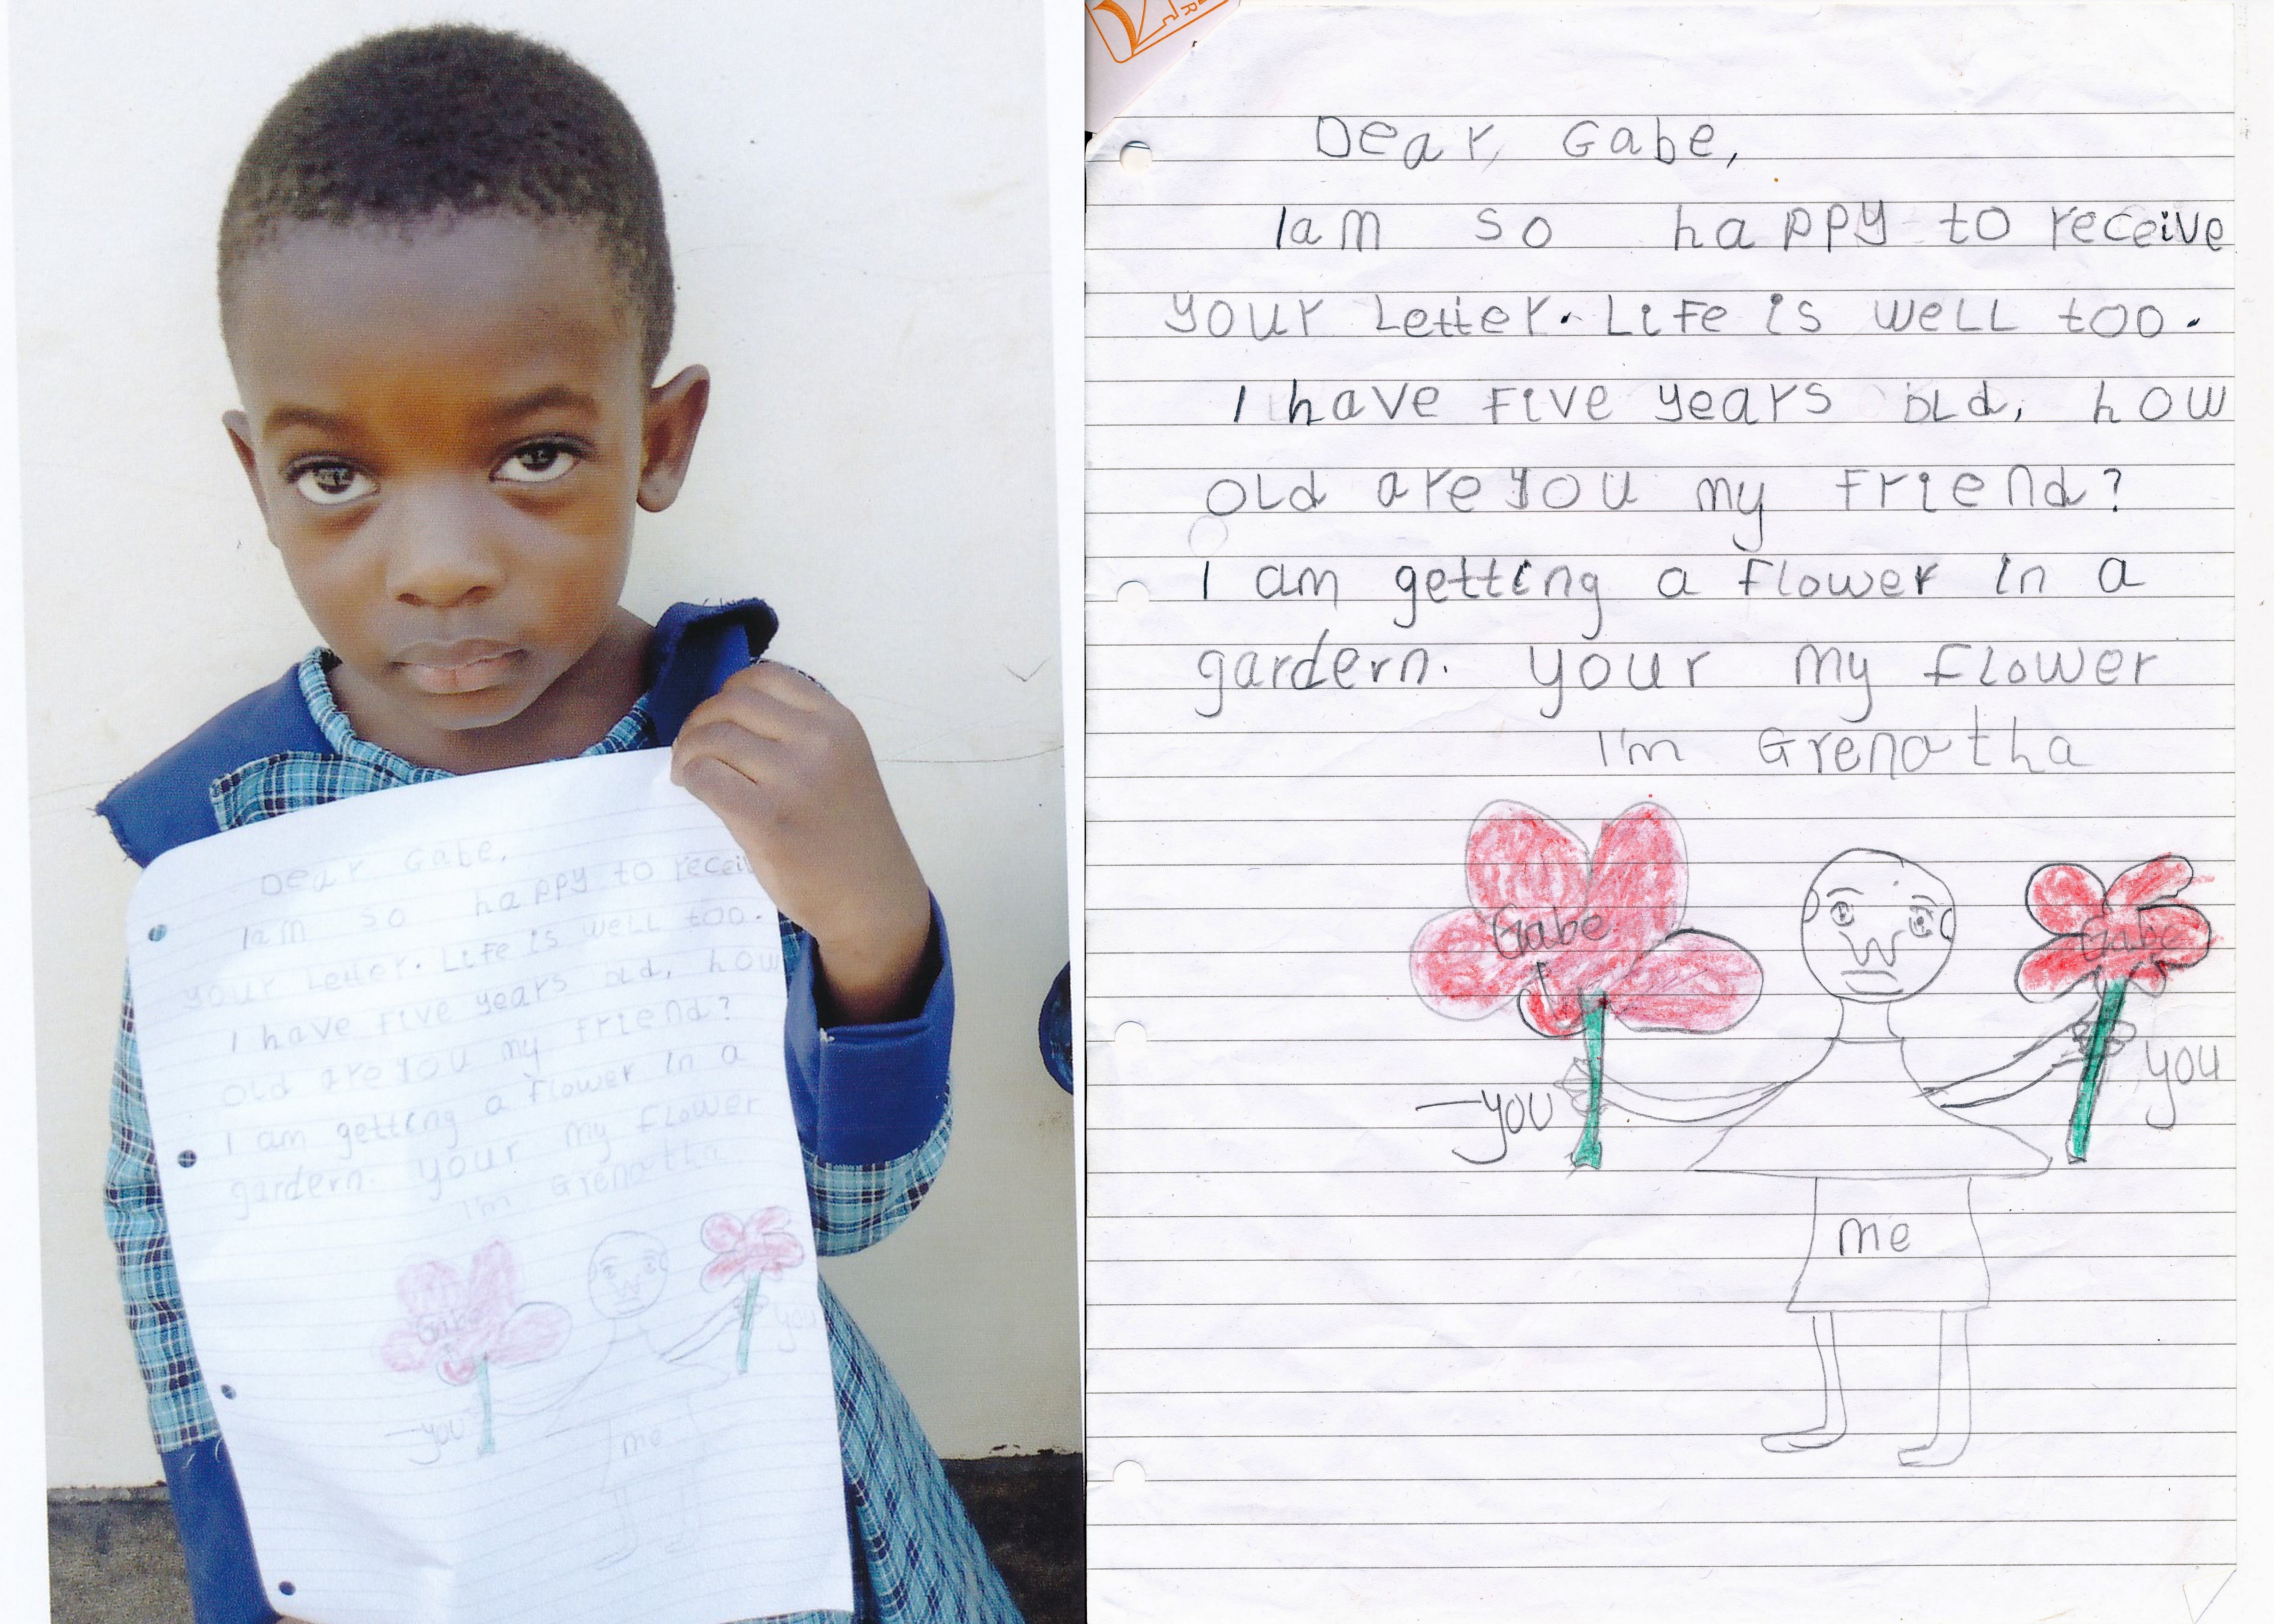 Dear Gabe,
Iam so happy to receive
your Letter. Life is well too.
I have five years old, how
old are you my friend?
I am getting a flower in a
gardern. your my flower
I'm Grenatha
Gabe
Gabe
you
you
me
Dear Gabe,
Iam so happy to recei
your Letter. Life is well too.
I have five years old, how
old are you my friend?
I am getting a flower in a
gardern. your my flower
I'm Grenatha
Gabe
you
you
me